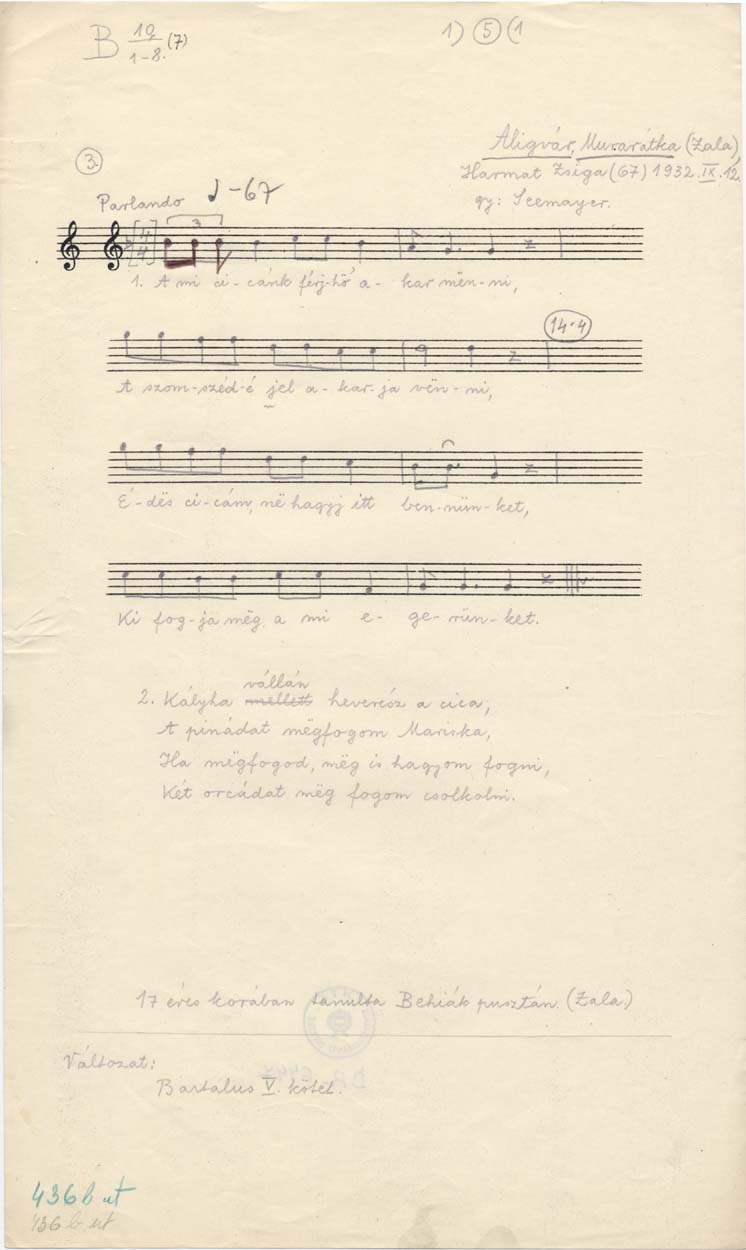 B 10/1-8. (7)
1) 5 (1
3.
Aligvár, Murarátka (Zala),
Harmat Zsiga (67) 1932.IX.12.
gy: Seemayer.
Parlando ♩-67
3
4/4
1. A mi ci-cánk férj-hö a- kar mën-ni,
14·4
A szom-széd-é jel a-kar-ja vën-ni,
É-dës ci-cám, në hagyj itt ben-nün-ket,
Ki fog-ja mëg a mi e- ge-rün-ket.
vállán
2. Kályha mellett heverész a cica,
A pinádat mëgfogom Mariska,
Ha mëgfogod, mëg is hagyom fogni,
Két orcádat mëg fogom csolkolni.
17 éves korában tanulta Behiák pusztán. (Zala.)
Változat:
Bartalus V. kötet.
436 b ut
436 b. ut